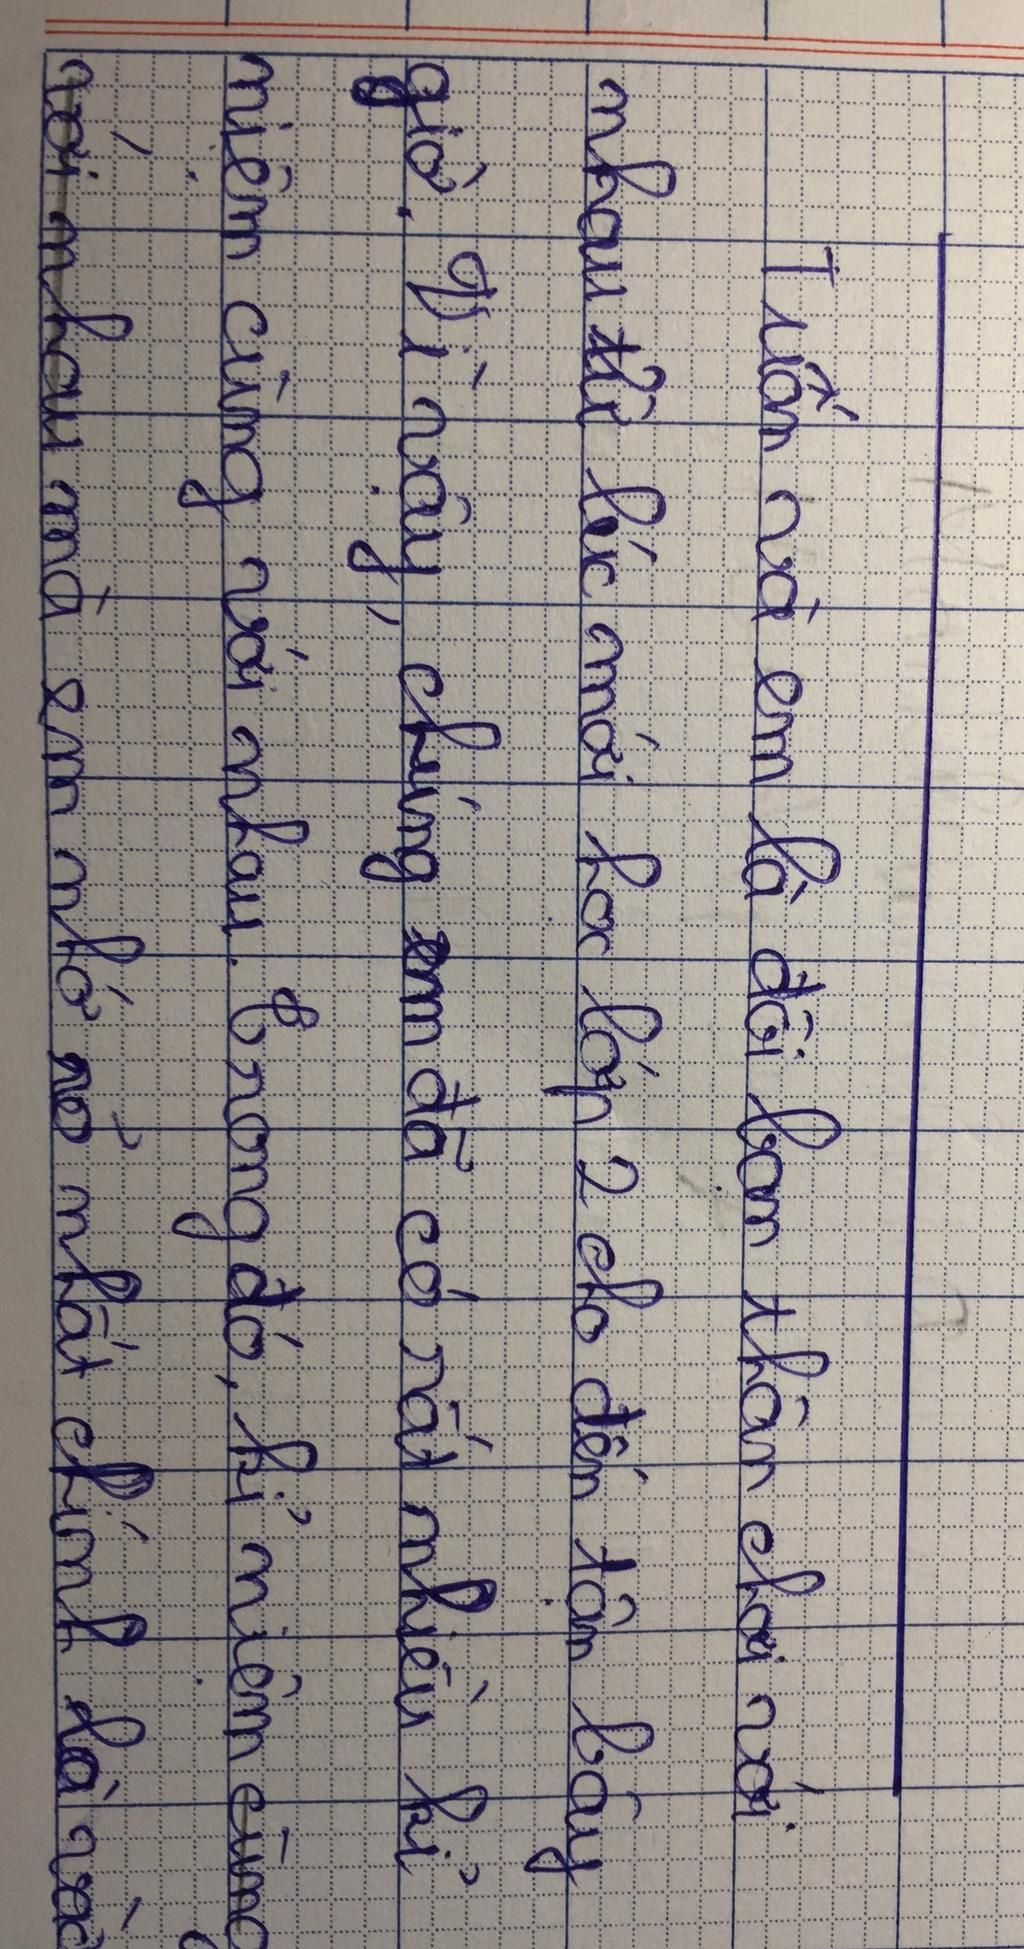 Tuấn và em là đôi bạn thân chơi với
nhau từ lúc mới học lớp 2 cho đến tận bây
giờ. Vì vậy, chúng em đã có rất nhiều kỉ
niệm cùng với nhau. Trong đó, kỉ niệm cùng
với nhau mà em nhớ rõ nhất chính là vào